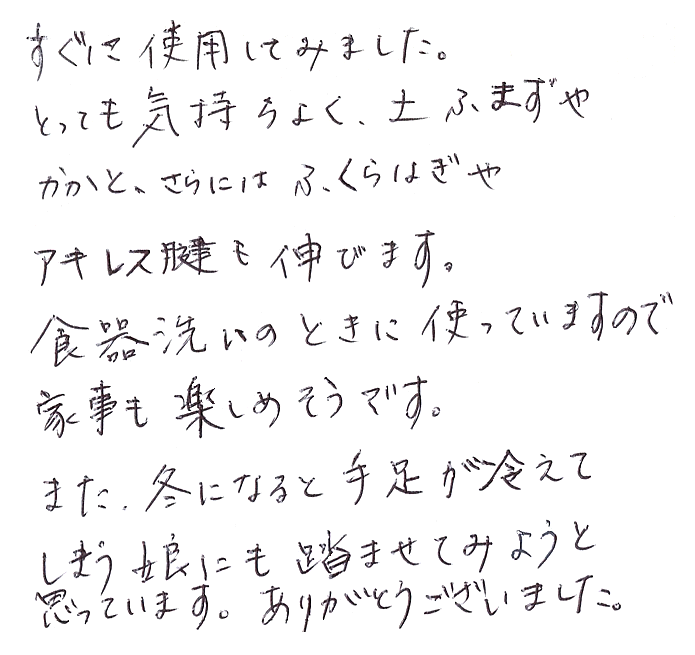 すぐに使用してみました。
とっても気持ちよく、土ふまずや
かかと、さらにはふくらはぎや
アキレス腱も伸びます。
食器洗いのときに使っていますので
家事も楽しめそうです。
また、冬になると手足が冷えて
しまう娘にも踏ませてみようと
思っています。ありがとうございました。